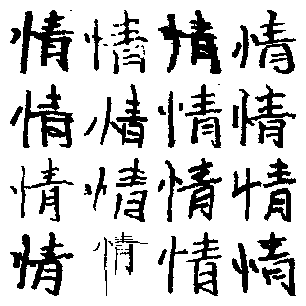 情情情情
情情情情
情情情情
情情情情